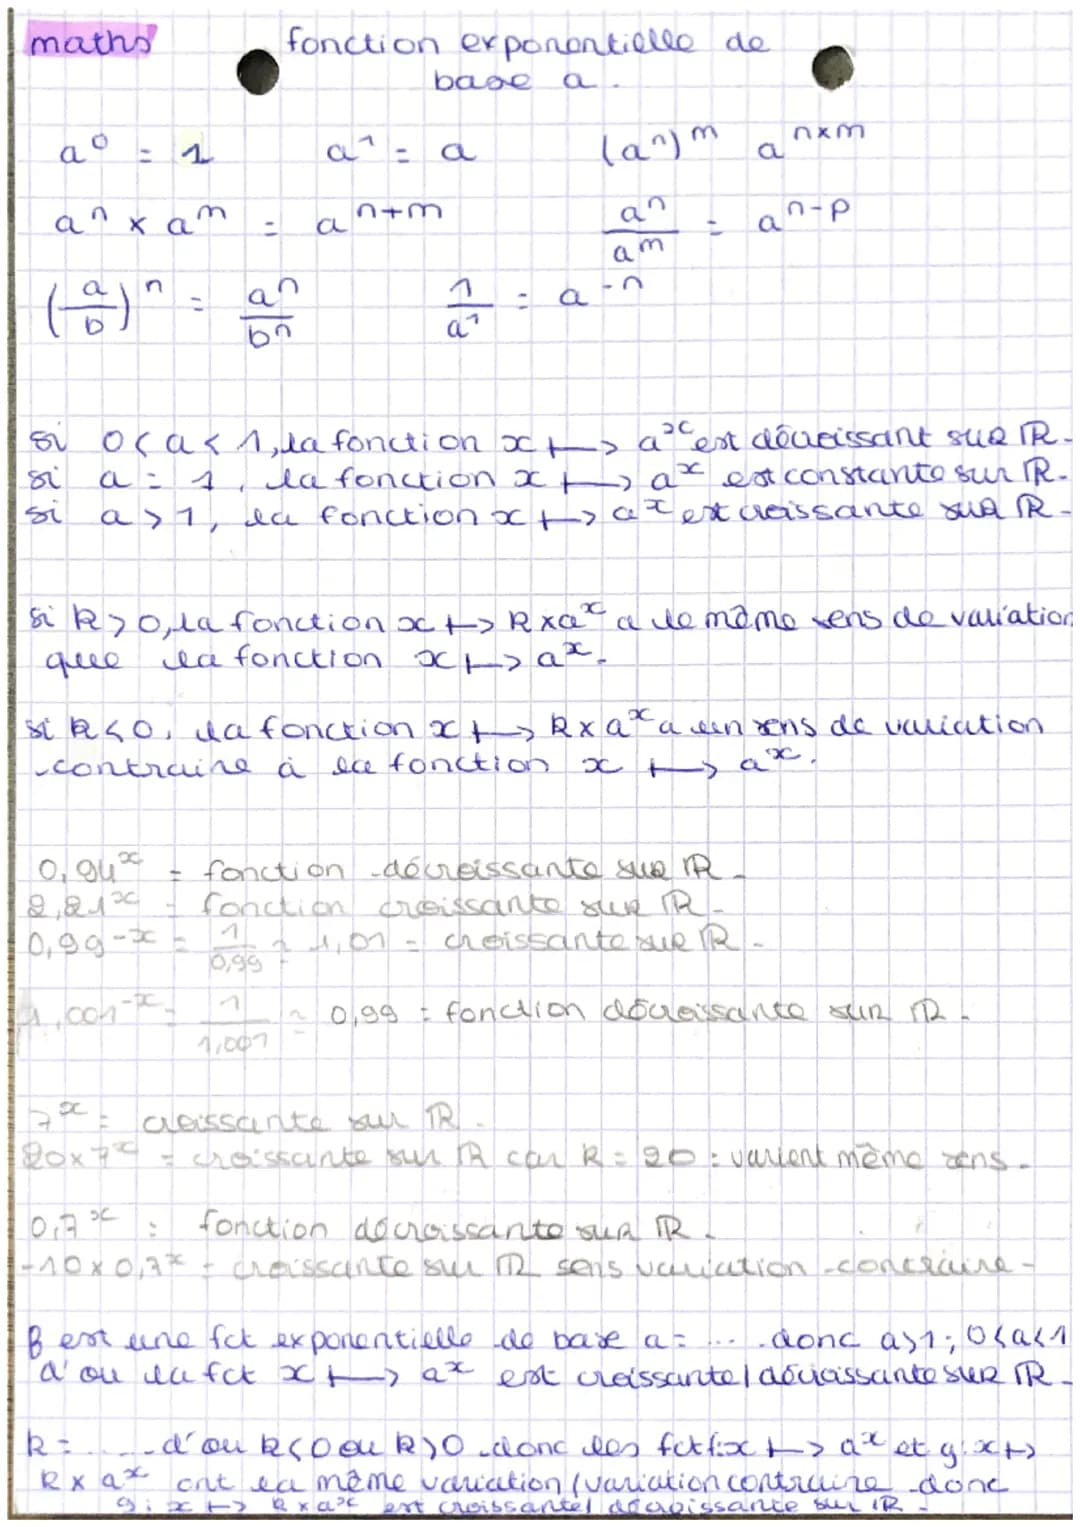 maths fonction exponentielle de
base a.
a⁰ = 1 a¹ = a (aⁿ)ᵐ aⁿˣᵐ
aⁿ × aᵐ = aⁿ⁺ᵐ aⁿ/aᵐ = aⁿ⁻ᵖ
(a/b)ⁿ = aⁿ/bⁿ 1/a¹ = a⁻ⁿ
si 0<a<1, la fonction x ↦ aˣ est décroissant sur ℝ.
si a = 1, la fonction x ↦ aˣ est constante sur ℝ.
si a > 1, la fonction x ↦ aˣ est croissante sur ℝ.
si k>0, la fonction x ↦ k×aˣ a le même sens de variation
que la fonction x ↦ aˣ.
si k<0, la fonction x ↦ k×aˣ a un sens de variation
contraire à la fonction x ↦ aˣ.
0,94ˣ = fonction décroissante sur ℝ.
2,21ˣ = fonction croissante sur ℝ.
0,99⁻ˣ = 1/0,99 ≈ 1,01 = croissante sur ℝ.
1,001⁻ˣ = 1/1,001 ≈ 0,99 = fonction décroissante sur ℝ.
7ˣ = croissante sur ℝ.
20×7ˣ = croissante sur ℝ car k = 20 : varient même sens.
0,7ˣ = fonction décroissante sur ℝ.
-10×0,7ˣ = croissante sur ℝ sens variation contraire.
f est une fct exponentielle de base a= ... donc a>1; 0<a<1
d'ou la fct x ↦ aˣ est croissante/décroissante sur ℝ.
k = ..... d'ou k<0 ou k>0 donc les fct f:x ↦ aˣ et g:x ↦
k×aˣ ont la même variation/variation contraire donc
g: x ↦ k×aˣ est croissante/décroissante sur ℝ.